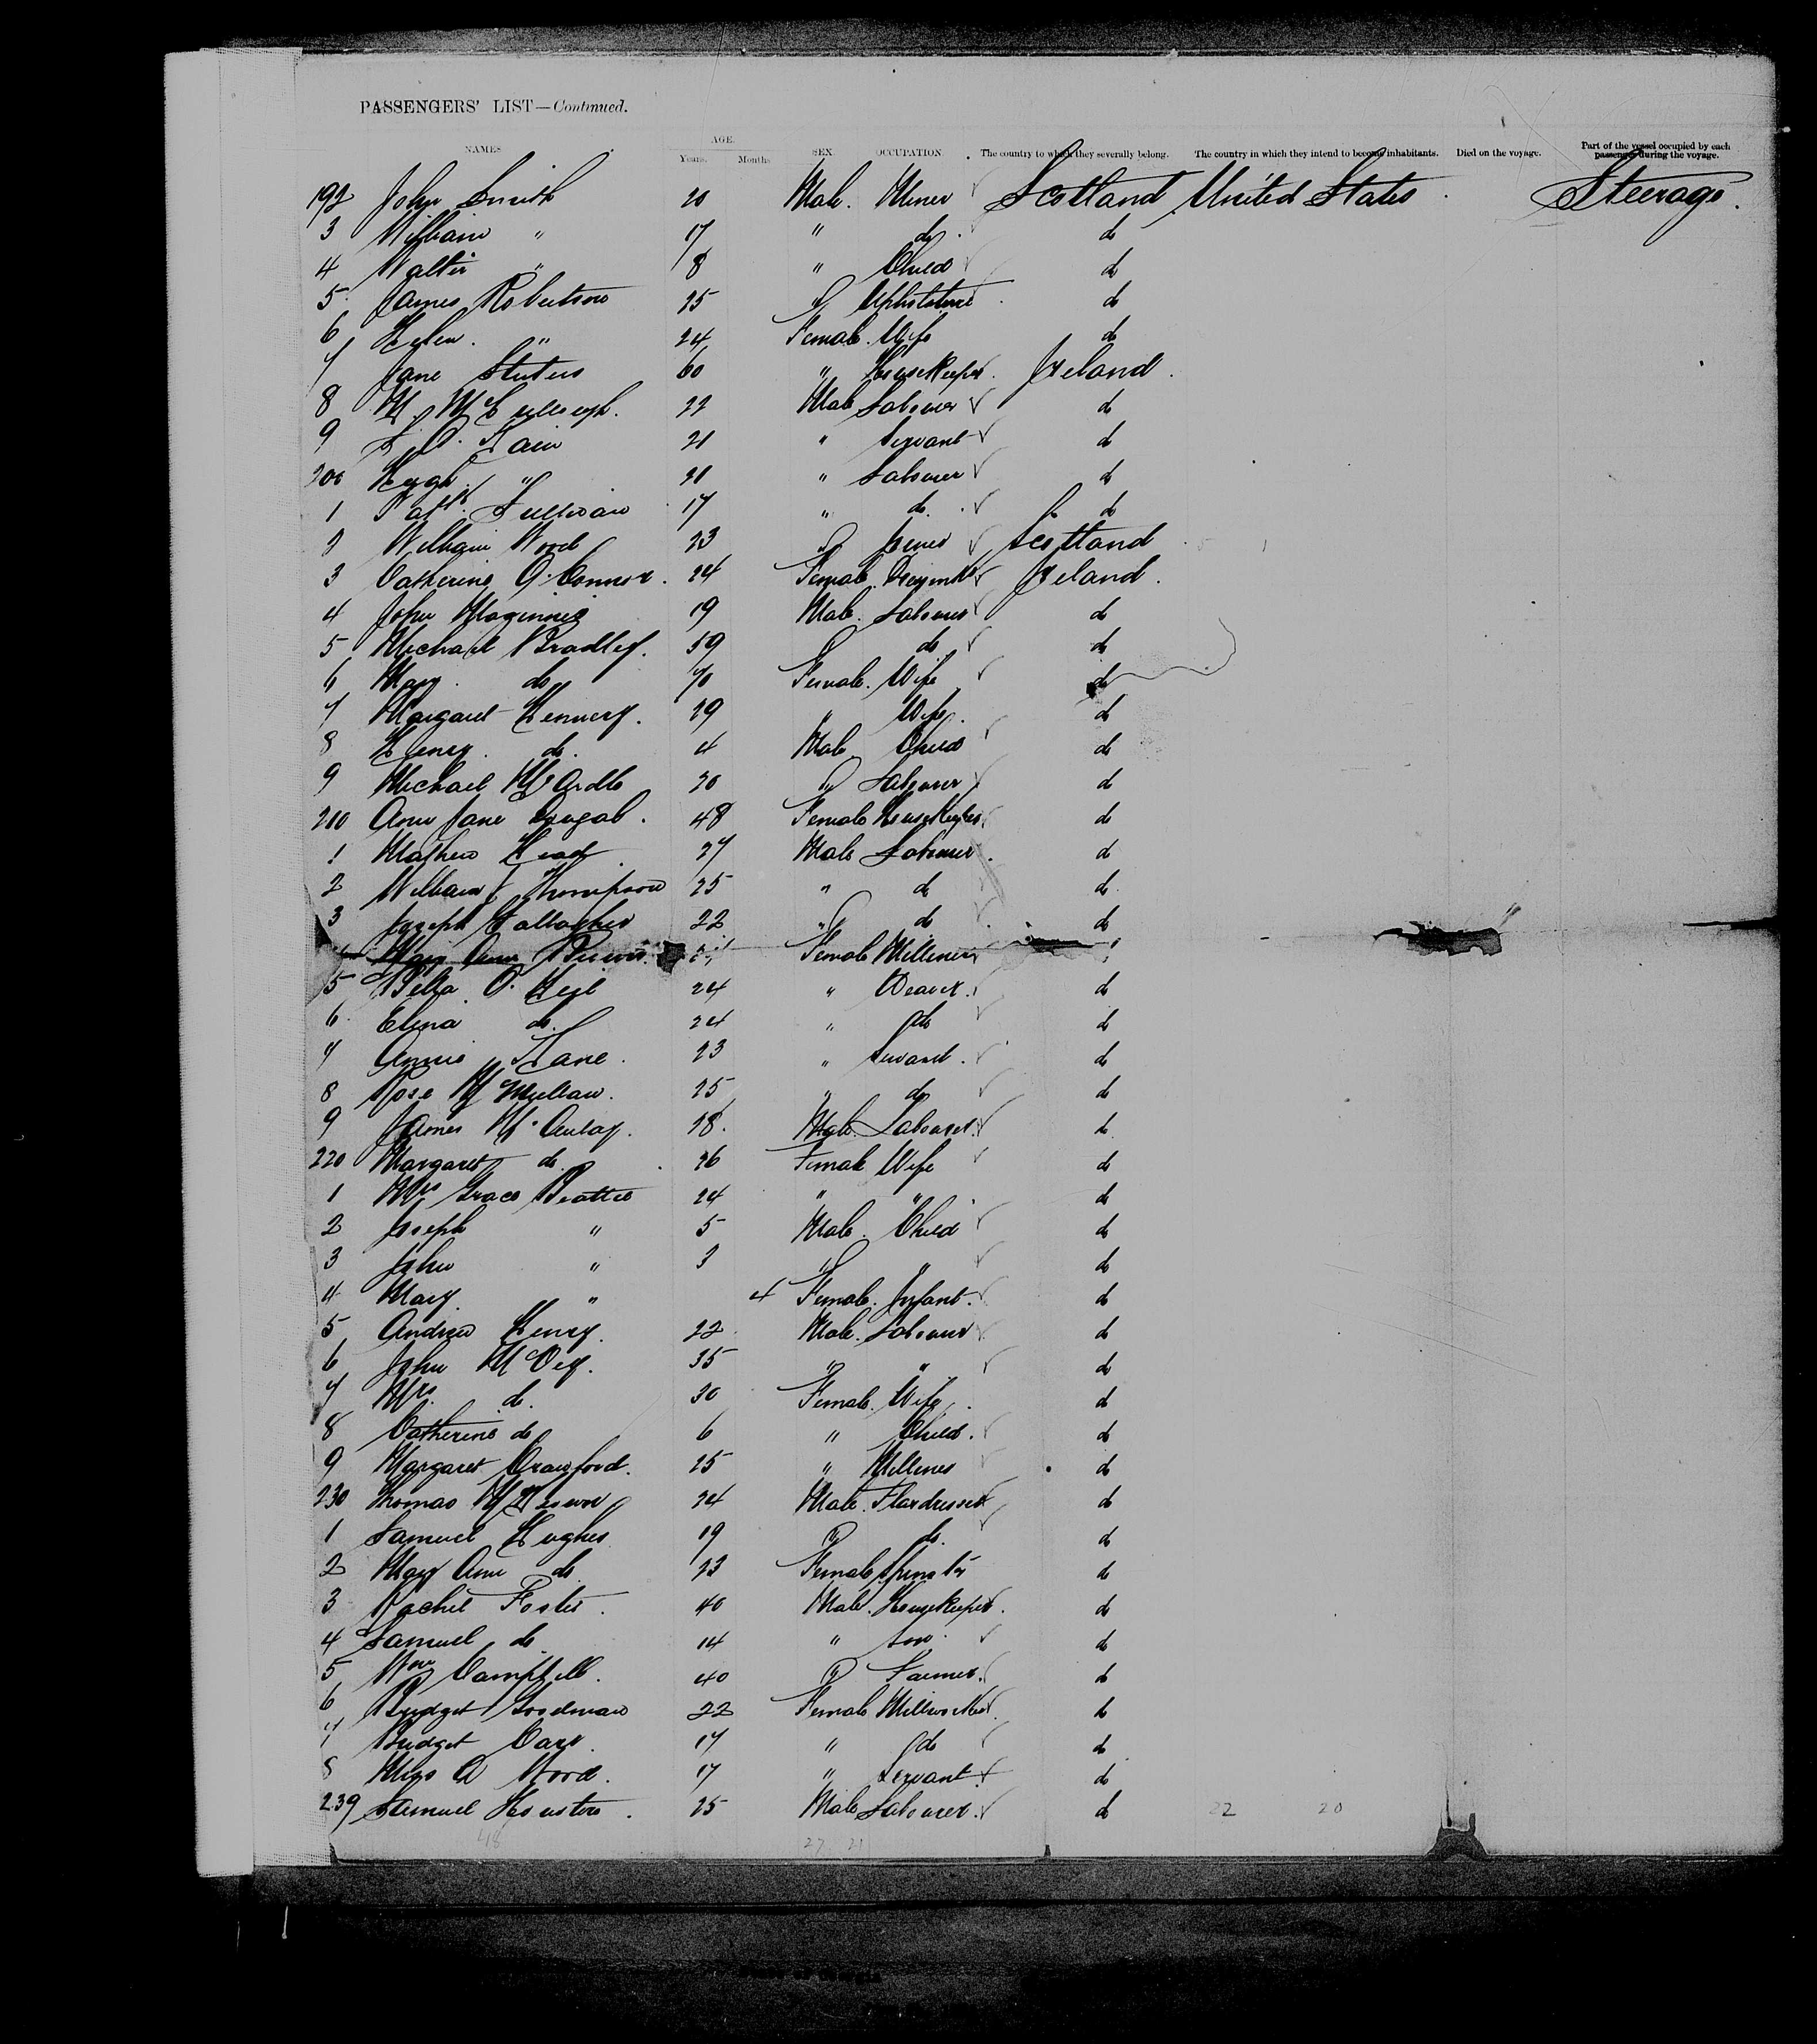 PASSENGERS' LIST—Continued.
NAMES AGE. Years. Months SEX. OCCUPATION. The country to which they severally belong. The country in which they intend to become inhabitants. Died on the voyage. Part of the vessel occupied by each passenger during the voyage.
192 John Smith 20 Male. Miner Scotland United States Steerage.
3 William " 17 " do. do
4 Walter " 8 " Child do
5 James Robertson 25 " do
6 Helen. " 24 Female. Wife do
7 Jane 60 " Housekeeper. Ireland.
8 22 Male Labourer do
9 Kain 21 " Servant do
200 Hugh " 21 " Labourer do
1 Patk. Sullivan 17 " do. do
2 William Wood 23 " Scotland
3 Catherine O'Connor. 24 Female. Ireland.
4 John Maginnis 19 Male. Labourer do
5 Michael Bradley. 59 " do do
6 Mary. do 70 Female. Wife do
7 Margaret 29 " Wife. do
8 Henry. do. 4 Male Child do
9 Michael McArdle 20 " Labourer do
210 Ann Jane Dougal. 48 Female Housekeeper do
1 Mathew 27 Male Labourer. do
2 William J Thompson 25 " do do
3 Joseph Gallagher 22 " do do
Mary Ann Female Milliner
5 O'Neil 24 " Weaver. do
6 do. 24 " do do
7 Annie Kane. 23 " Servant. do
8 Rose McMullan. 25 " do do
9 James McAulay. 28. Male. Labourer. do
220 Margaret do. 26 Female Wife do
1 Mrs Grace Beattie 24 " " do
2 Joseph " 5 Male. Child do
3 John " 3 " " do
4 Mary " 4 Female. Infant. do
5 Andrew Henry. 22 Male. Labourer do
6 John McVey. 35 " " do
7 Mrs. do. 30 Female. Wife. do
8 Catherine do 6 " Child. do
9 Margaret Crawford. 25 " Milliner do
230 Thomas 24 Male. Flaxdresser do
1 Samuel Hughes 19 " do. do
2 Mary Ann do 23 Female Spinster do
3 Rachel Foster. 40 Male. Housekeeper. do
4 Samuel do 14 " Son. do
5 Wm Campbell. 40 " Farmer. do
6 Bridget Goodman 22 Female Millworker. do
7 Bridget Carr. 17 " do do
8 Miss A Wood. 17 " Servant do
239 Samuel Houston. 25 Male Labourer. do 22 20
48 27 21